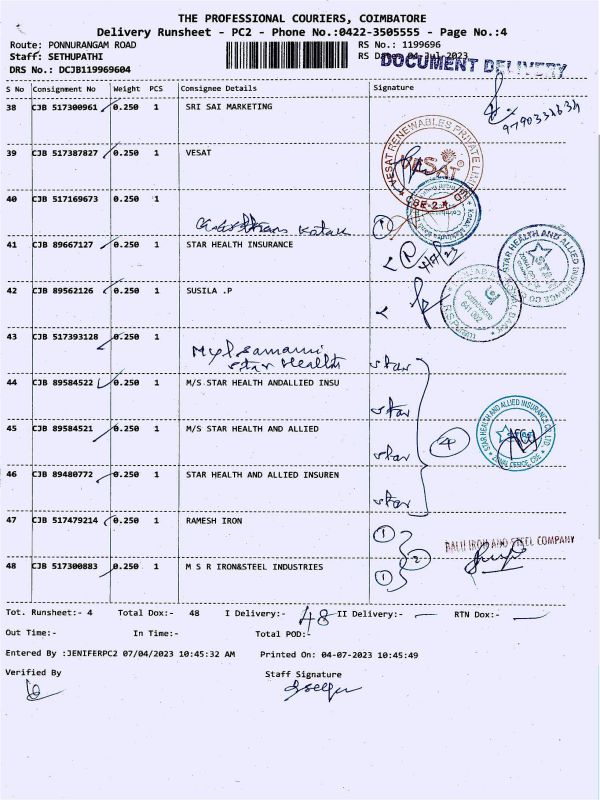 THE PROFESSIONAL COURIERS, COIMBATORE
Delivery Runsheet - PC2 - Phone No.:0422-3505555 - Page No.:4
Route: PONNURANGAM ROAD
RS No.: 1199696
Staff: SETHUPATHI
RS Date: 04-Jul-2023
DRS No.: DCJB119969604
DOCUMENT DELIVERY
S No Consignment No Weight PCS Consignee Details Signature
38 CJB 517300961 0.250 1 SRI SAI MARKETING
9790334634
39 CJB 517387827 0.250 1 VESAT
VESAT RENEWABLES PRIVATE LIMITED
VESAT
CBE-2
40 CJB 517169673 0.250 1
1
41 CJB 89667127 0.250 1 STAR HEALTH INSURANCE
4/7/23
STAR HEALTH AND ALLIED INSURANCE CO
42 CJB 89562126 0.250 1 SUSILA .P
Coimbatore
641 002
43 CJB 517393128 0.250 1
star Health
star
44 CJB 89584522 0.250 1 M/S STAR HEALTH ANDALLIED INSU
star
45 CJB 89584521 0.250 1 M/S STAR HEALTH AND ALLIED
star
4
STAR HEALTH AND ALLIED INSURANCE CO. LTD.
ZONAL OFFICE, CBE
46 CJB 89480772 0.250 1 STAR HEALTH AND ALLIED INSUREN
star
47 CJB 517479214 0.250 1 RAMESH IRON
1
2
BALU IRON AND STEEL COMPANY
48 CJB 517300883 0.250 1 M S R IRON&STEEL INDUSTRIES
1
Tot. Runsheet:- 4 Total Dox:- 48 I Delivery:- 48 II Delivery:- — RTN Dox:- —
Out Time:- In Time:- Total POD:-
Entered By :JENIFERPC2 07/04/2023 10:45:32 AM Printed On: 04-07-2023 10:45:49
Verified By Staff Signature